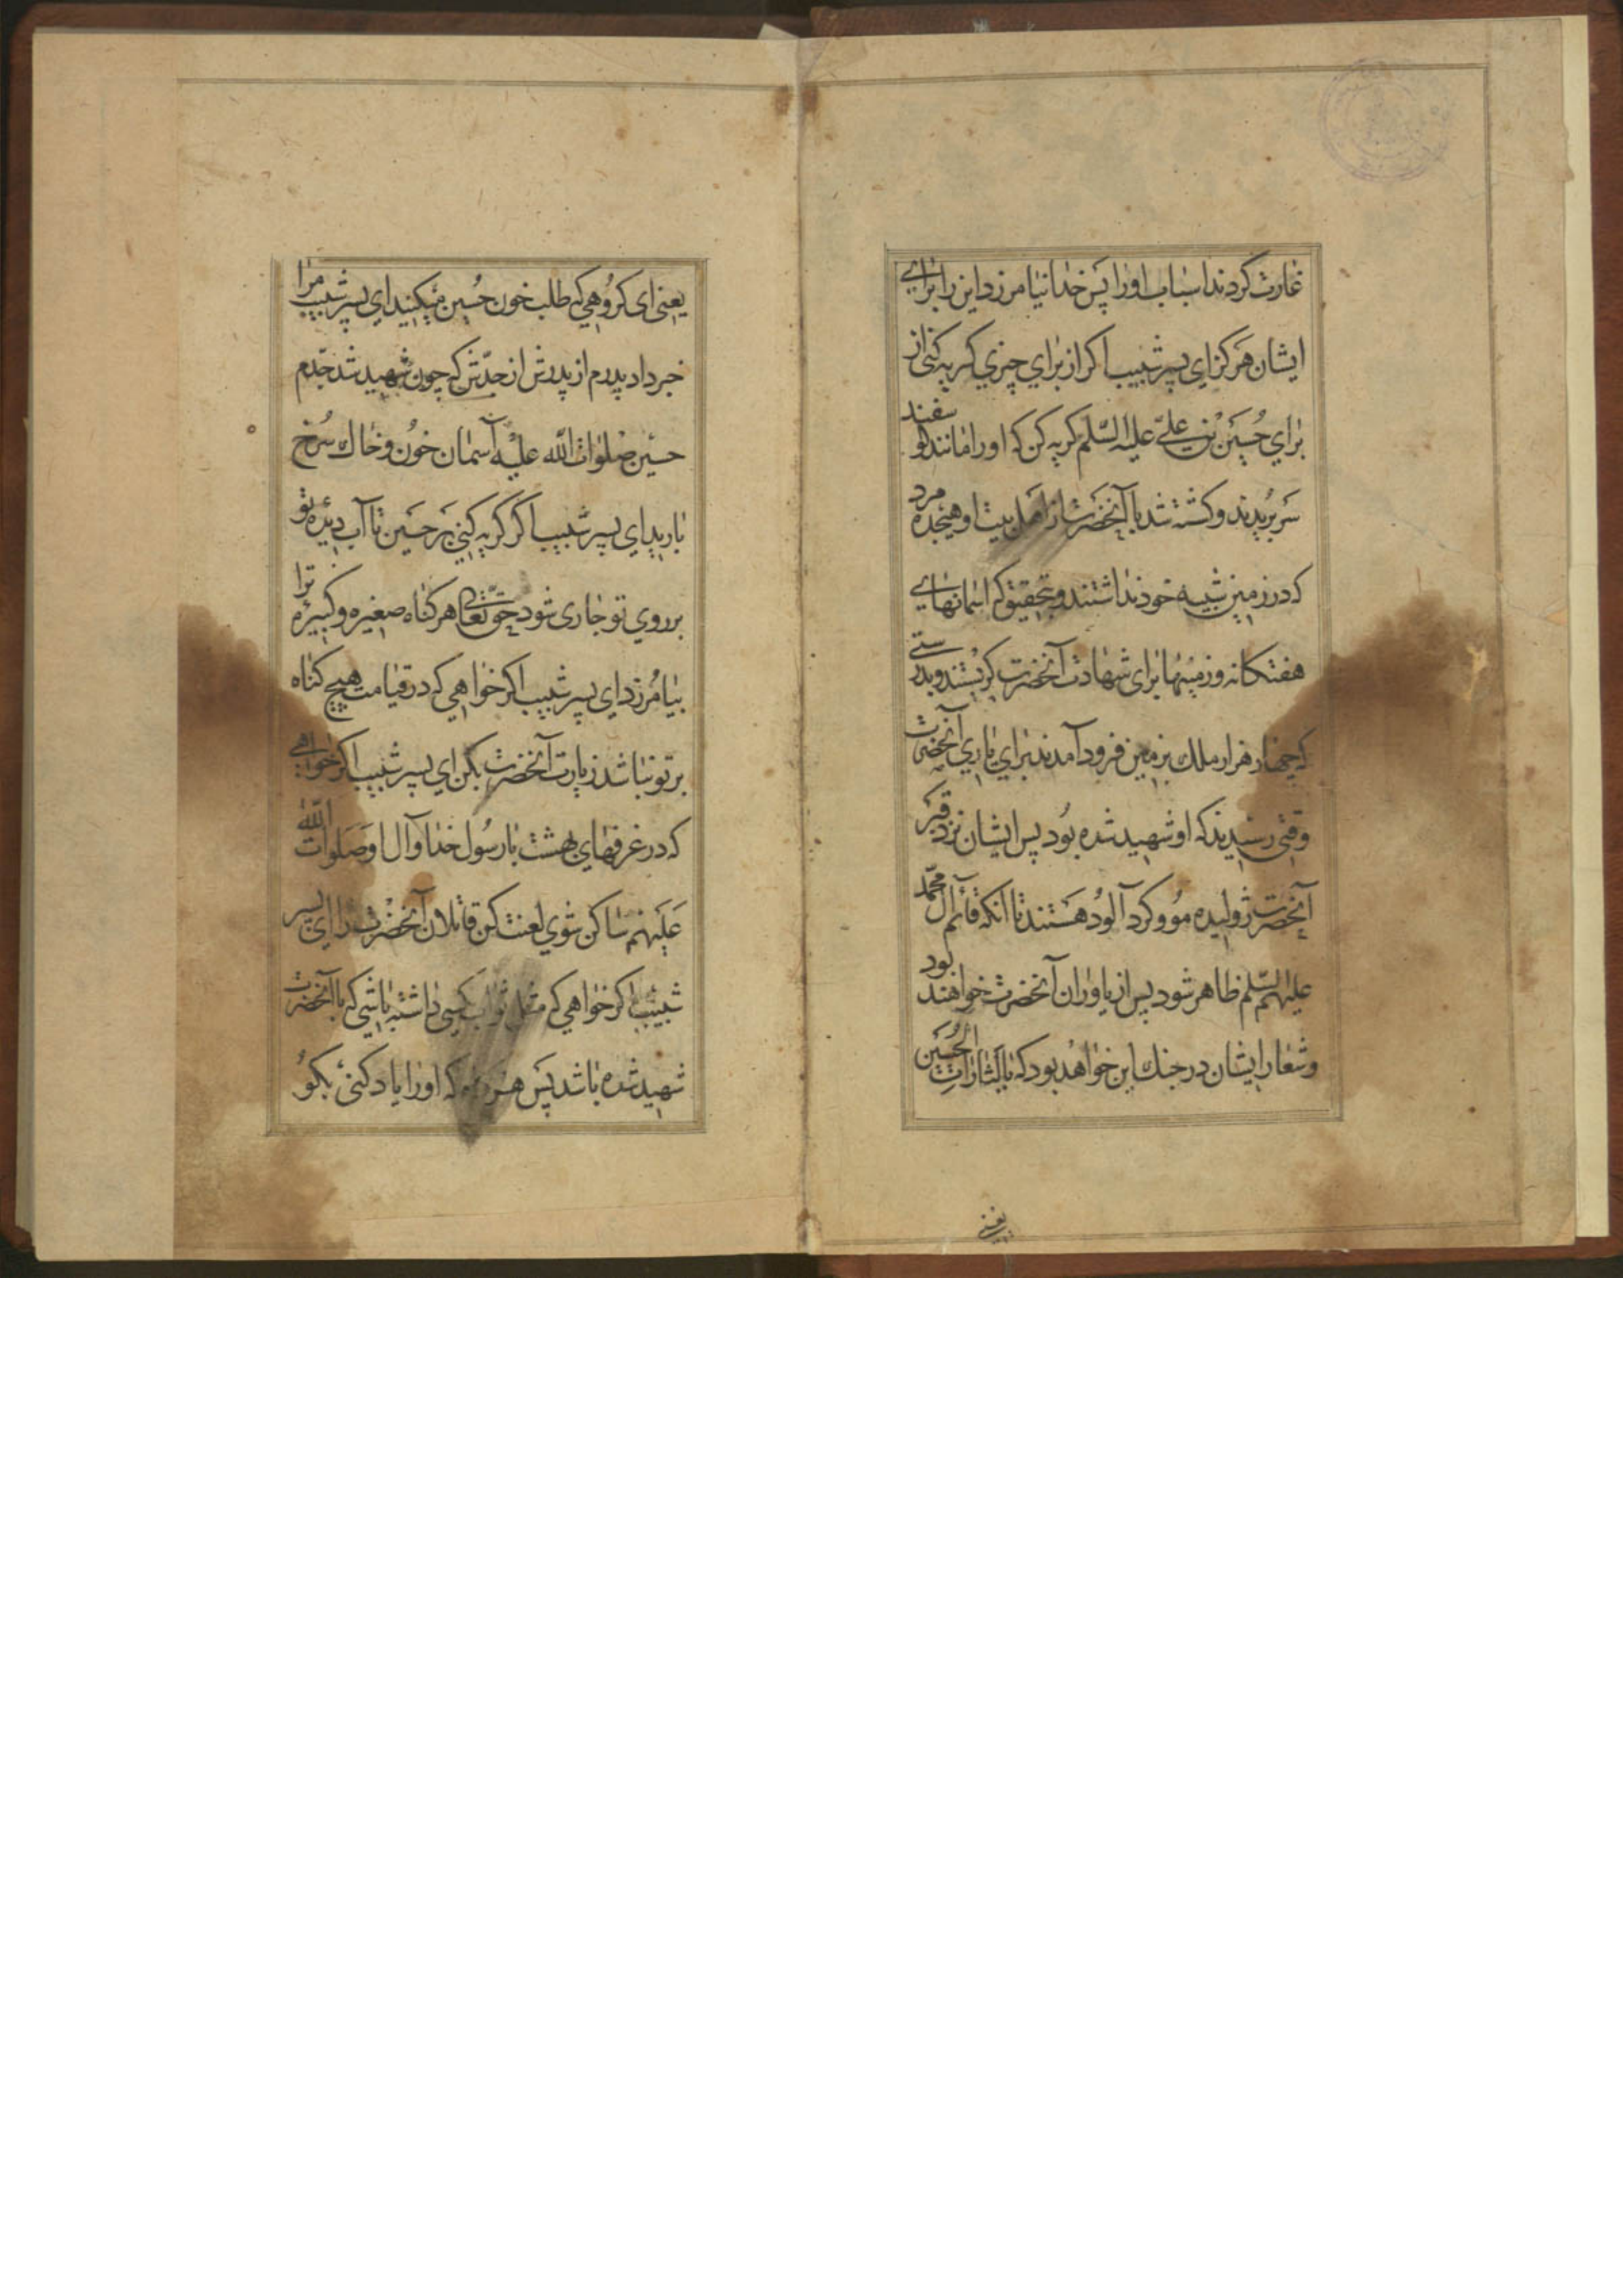 غارت کردند اسباب او را پس خدا نیامرزد این را برای
ایشان هرکز ای پسر شبیب اکر از برای چیزی کریه کنی از
برای حسین بن علی علیه السلم کریه کن که او را مانند کوسفند
سر بریدند و کشته شد با آنحضرت از اهل بیت او هیجده مرد
که در زمین شبیه خود نداشتند و بتحقیق که اسمانهای
هفتکانه و زمینها برای شهادت آنحضرت کریستند و بدرستی
که چهار هزار ملك بزمین فرود آمدند برای یاری آنحضرت
وقتی رسیدند که او شهید شده بود پس ایشان نزد قبر
آنحضرت ژولیده مو و کرد آلود هستند تا انکه قائم آل محمد
علیهم السلم ظاهر شود پس از یاوران آنحضرت خواهند بود
و شعار ایشان در جنك این خواهد بود که یا لثارات الحسین
یعنی
یعنی ای کروهی که طلب خون حسین میکنید ای پسر شبیب مرا
خبر داد پدرم از پدرش از جدش که چون شهید شد جدم
حسین صلوات الله علیه آسمان خون و خاك سرخ
بارید ای پسر شبیب اکر کریه کنی بر حسین تا آب دیده تو
بر روی تو جاری شود حق تعالی هر کناه صغیره و کبیره ترا
بیامرزد ای پسر شبیب اکر خواهی که در قیامت هیچ کناه
بر تو نباشد زیارت آنحضرت بکن ای پسر شبیب اکر خواهی
که در غرفهای بهشت با رسول خدا و آل او صلوات الله
علیهم ساکن شوی لعنت کن قاتلان آنحضرت را ای پسر
شبیب اکر خواهی که مثل ثواب کسی داشته باشی که با آنحضرت
شهید شده باشد پس هر که او را یاد کنی بکو